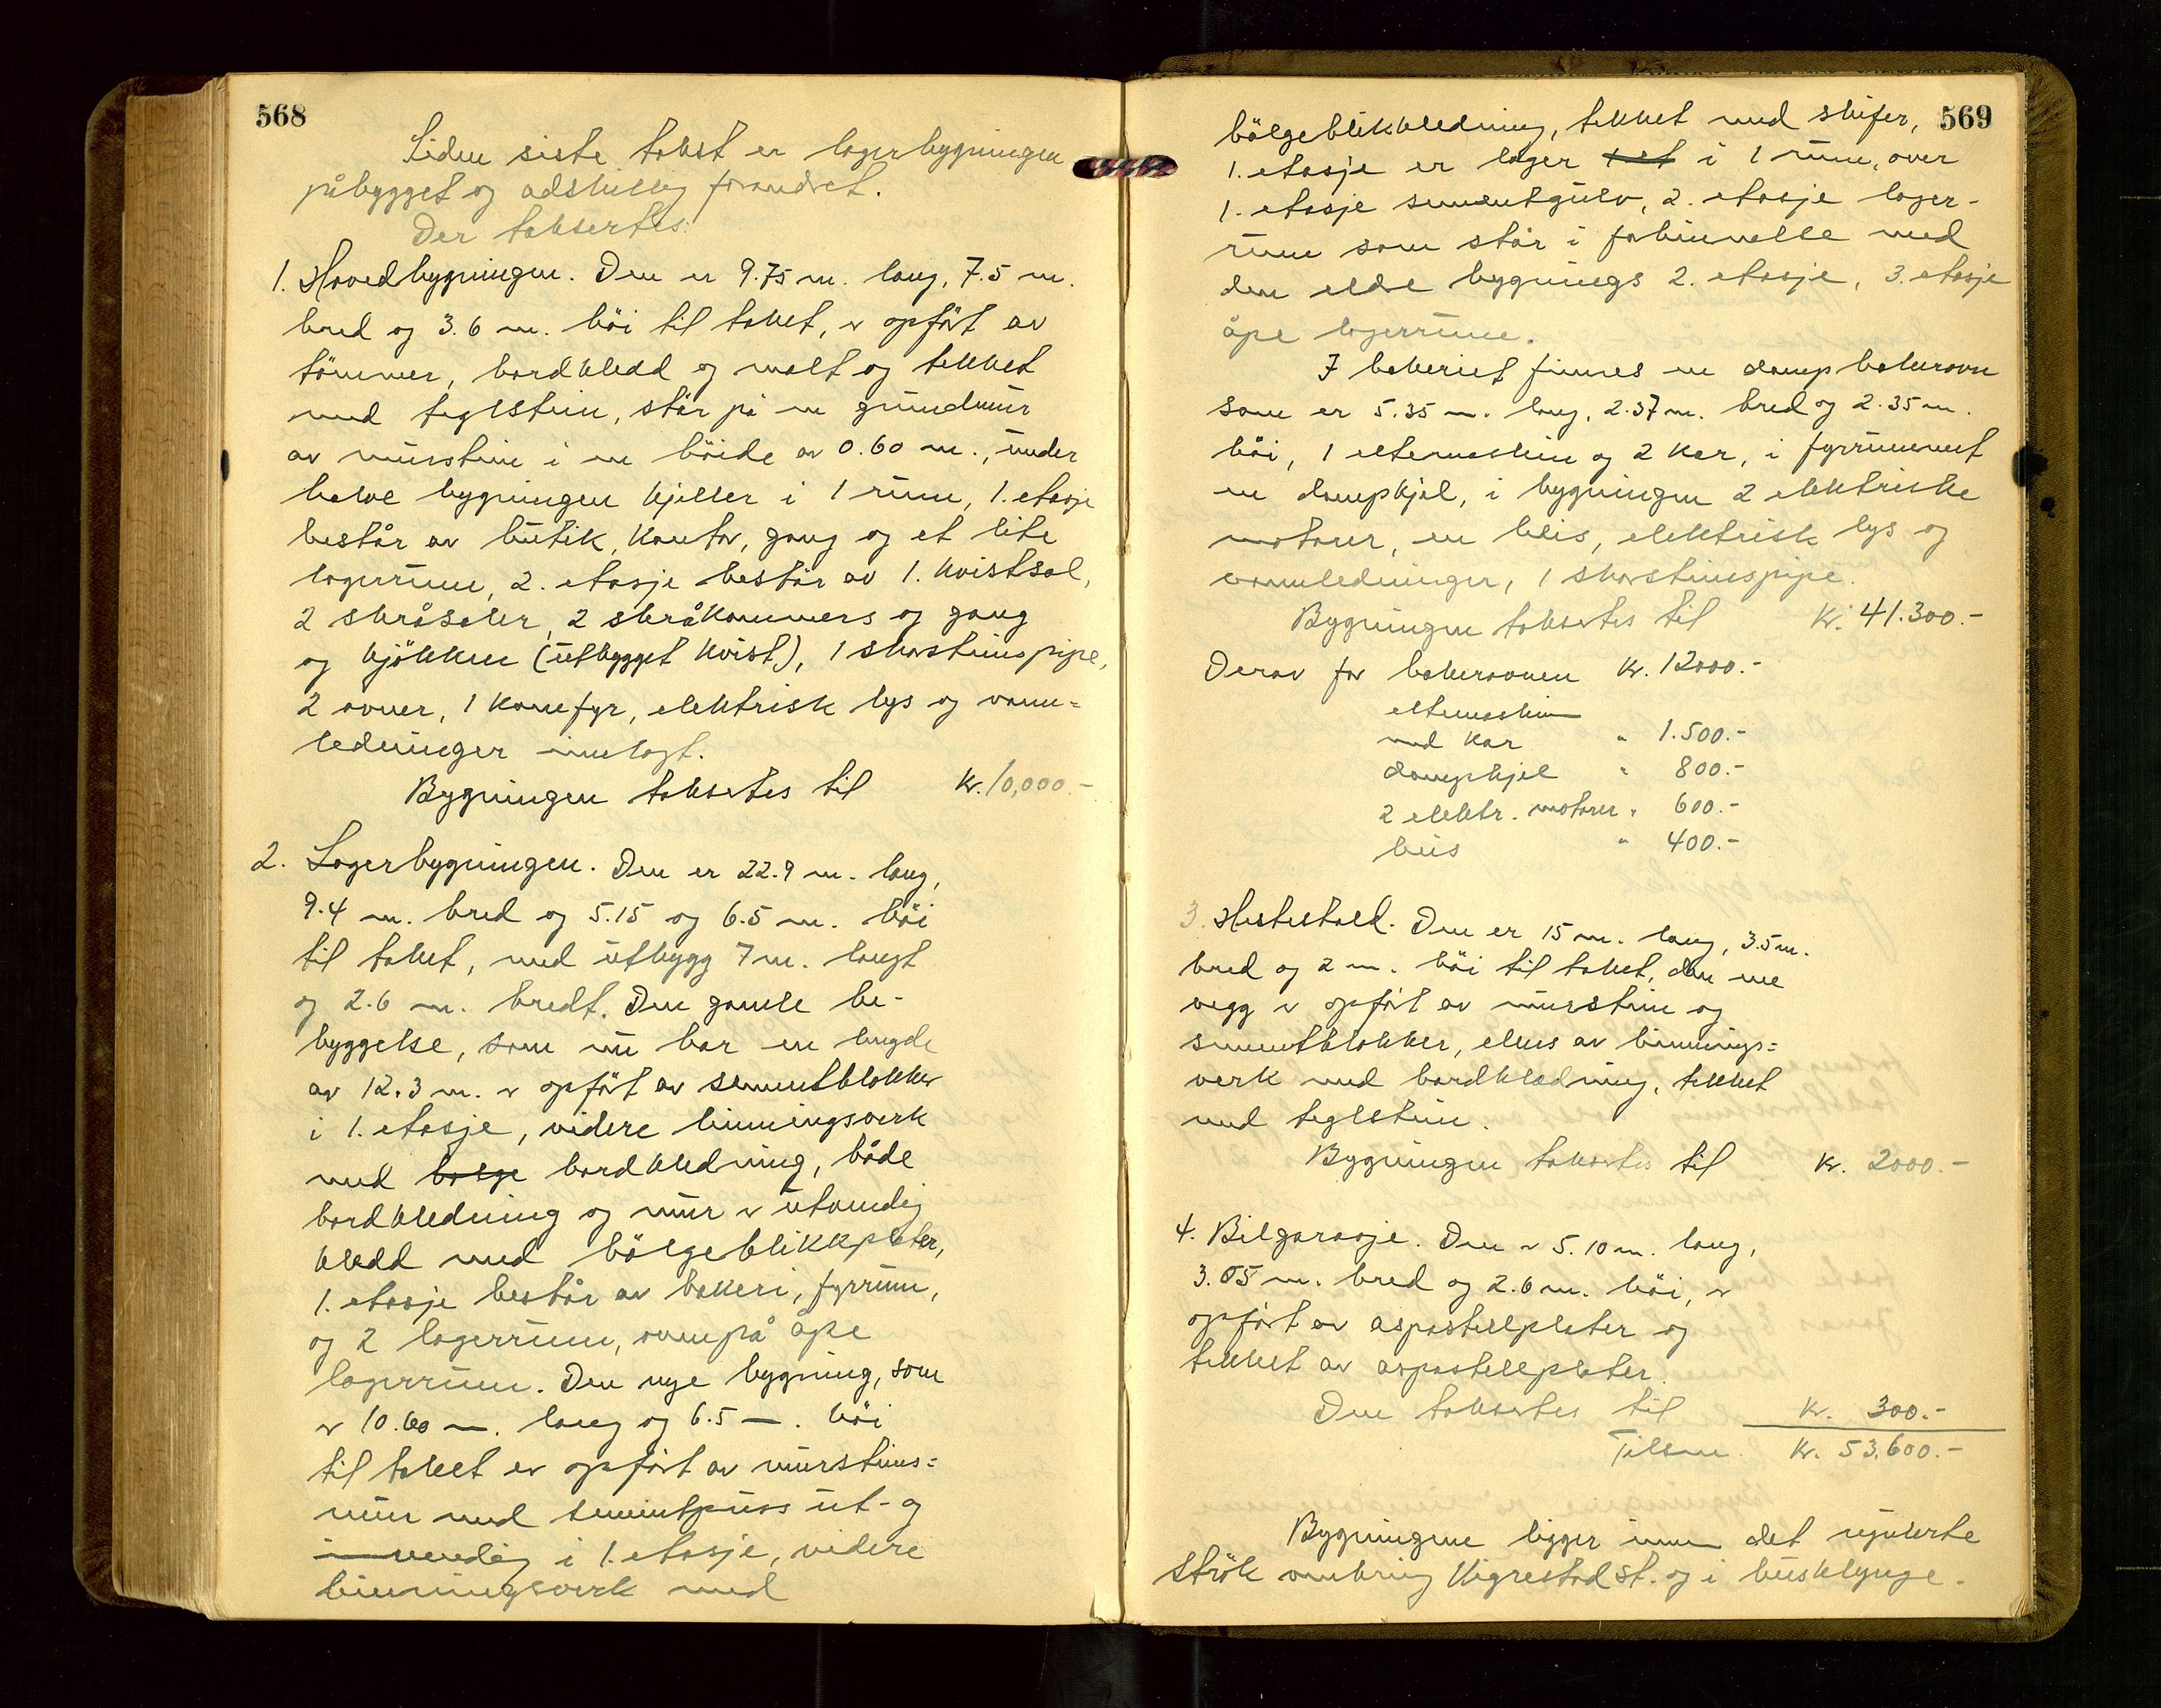 568
Siden siste takst er lagerbygningen
påbygget og adskillig forandret.
Der takseres:
1. Hovedbygningen. Den er 9.75 m. lang, 7.5 m.
bred og 3.6 m. höi til taket, er opfört av
tömmer, bordkledd og malt og tekket
med teglstein, står på en grundmur
av murstein i en höide av 0.60 m., under
halve bygningen kjeller i 1 rum, 1. etasje
består av butik, kontor, gang og et lite
lagerrum, 2. etasje består av 1. kvistsal,
2 skråsaler, 2 skråkammers og gang
og kjökken (utbygget kvist), 1 skorsteinspipe,
2 ovner, 1 komfyr, elektrisk lys og vann=
ledninger innlagt.
Bygningen takseres til Kr. 10,000.-
2. Lagerbygningen. Den er 22.9 m. lang,
9.4 m. bred og 5.15 og 6.5 m. höi
til taket, med utbygg 7 m. langt
og 2.6 m. bredt. Den gamle be-
byggelse, som nu har en lengde
av 12.3 m. er opfört av sementblokker
i 1. etasje, videre binningsverk
med bölge bordkledning, både
bordkledning og mur er utvendig
kledd med bölgeblikkplater,
1. etasje består av bakeri, fyrrum,
og 2 lagerrum, ovenpå åpe
lagerrum. Den nye bygning, som
er 10.60 m. lang og 6.5 m. höi
til taket er opfört av mursteins=
mur med sementpuss ut- og
innvendig i 1. etasje, videre
binningsverk med
569
bölgeblikkledning, tekket med skifer,
1. etasje er lager i 1 rum, over
1. etasje sementgulv, 2. etasje lager-
rum som står i forbinnelse med
den eldre bygnings 2. etasje, 3. etasje
åpe lagerrum.
I bakeriet finnes en damp bakerovn
som er 5.35 m. lang, 2.37 m. bred og 2.35 m.
höi, 1 eltemaskin og 2 kar, i fyrrummet
en dampkjel, i bygningen 2 elektriske
motorer, en heis, elektrisk lys og
vannledninger, 1 skorsteinspipe.
Bygningen takseres til Kr. 41.300.-
Derav for bakerovnen Kr. 12000.-
eltemaskin
med kar " 1.500.-
dampkjel " 800.-
2 elektr. motorer " 600.-
heis " 400.-
3. Hestestald. Den er 15 m. lang, 3.5 m.
bred og 2 m. höi til taket, den ene
vegg er opfört av murstein og
sementblokker, ellers av binnings=
verk med bordkledning, tekket
med teglstein.
Bygningen takseres til Kr. 2000.-
4. Bilgarasje. Den er 5.10 m. lang,
3.05 m. bred og 2.6 m. höi, er
opfört av aspastellplater og
tekket av aspastellplater.
Den takseres til Kr. 300.-
Tilsm. Kr. 53.600.-
Bygningene ligger innen det regulerte
strök omkring Vigrestad st. og i husklynge.